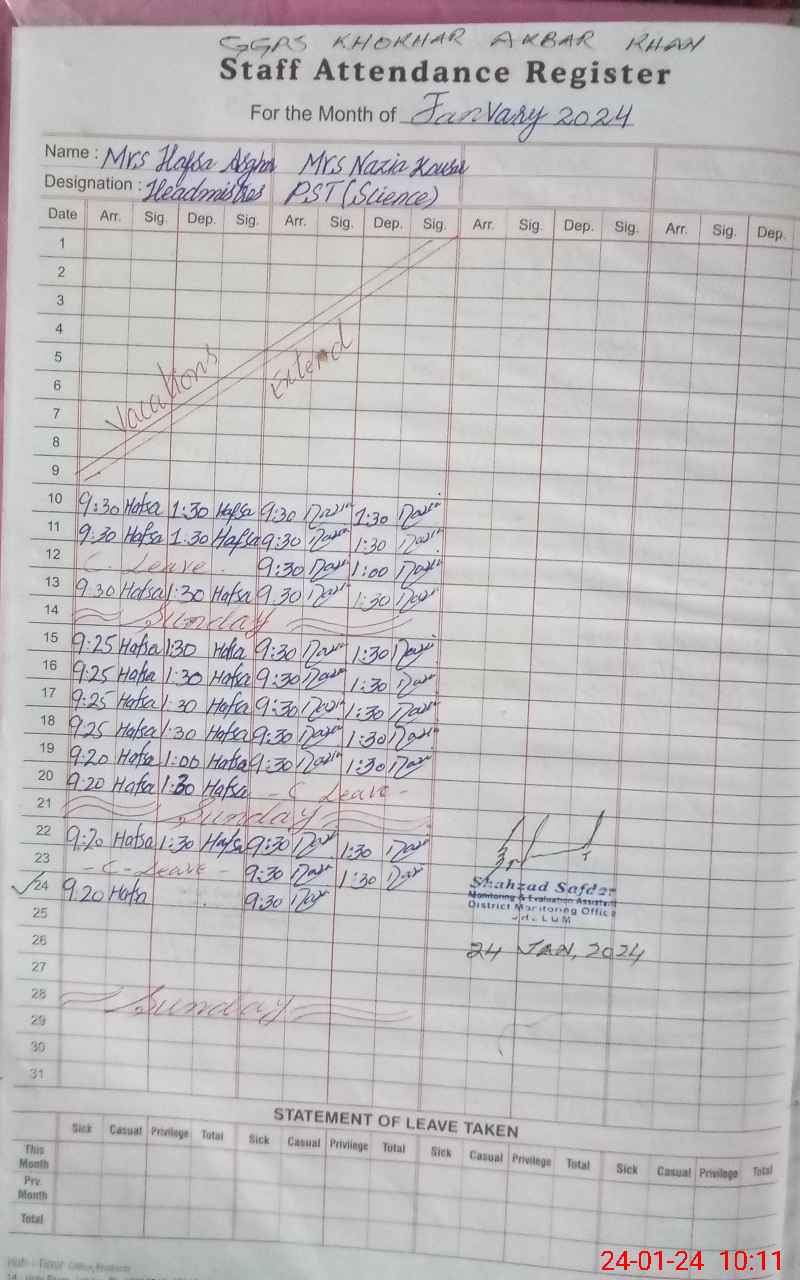 GGPS KHOKHAR AKBAR KHAN
Staff Attendance Register
For the Month of January 2024
Name : Mrs Hafsa Asghar Mrs Nazia Kousar
Designation : Headmistres PST (Science)
Date Arr. Sig. Dep. Sig. Arr. Sig. Dep. Sig. Arr. Sig. Dep. Sig. Arr. Sig. Dep.
1
2
3
4
5
Vacations Extend
6
7
8
9
10 9:30 Hafsa 1:30 Hafsa 9:30 1:30
11 9:30 Hafsa 1:30 Hafsa 9:30 1:30
12 C. Leave. 9:30 1:00
13 9.30 Hafsa 1:30 Hafsa 9.30 1:30
14 Sunday
15 9:25 Hafsa 1:30 Hafsa 9:30 1:30
16 9:25 Hafsa 1:30 Hafsa 9:30 1:30
17 9:25 Hafsa 1:30 Hafsa 9:30 1:30
18 9:25 Hafsa 1:30 Hafsa 9:30 1:30
19 9:20 Hafsa 1:00 Hafsa 9:30 1:30
20 9:20 Hafsa 1:30 Hafsa - C Leave -
21 Sunday
22 9:20 Hafsa 1:30 Hafsa 9:30 1:30
23 - C - Leave - 9:30 1:30
24 9:20 Hafsa 9:30
Shahzad Safdar
Monitoring & Evaluation Assistant
District Monitoring Office
25
26 24 JAN, 2024
27
28 Sunday
29
30
31
STATEMENT OF LEAVE TAKEN
Sick Casual Privilege Total Sick Casual Privilege Total Sick Casual Privilege Total Sick Casual Privilege Total
This Month
Prv. Month
Total
24-01-24 10:11